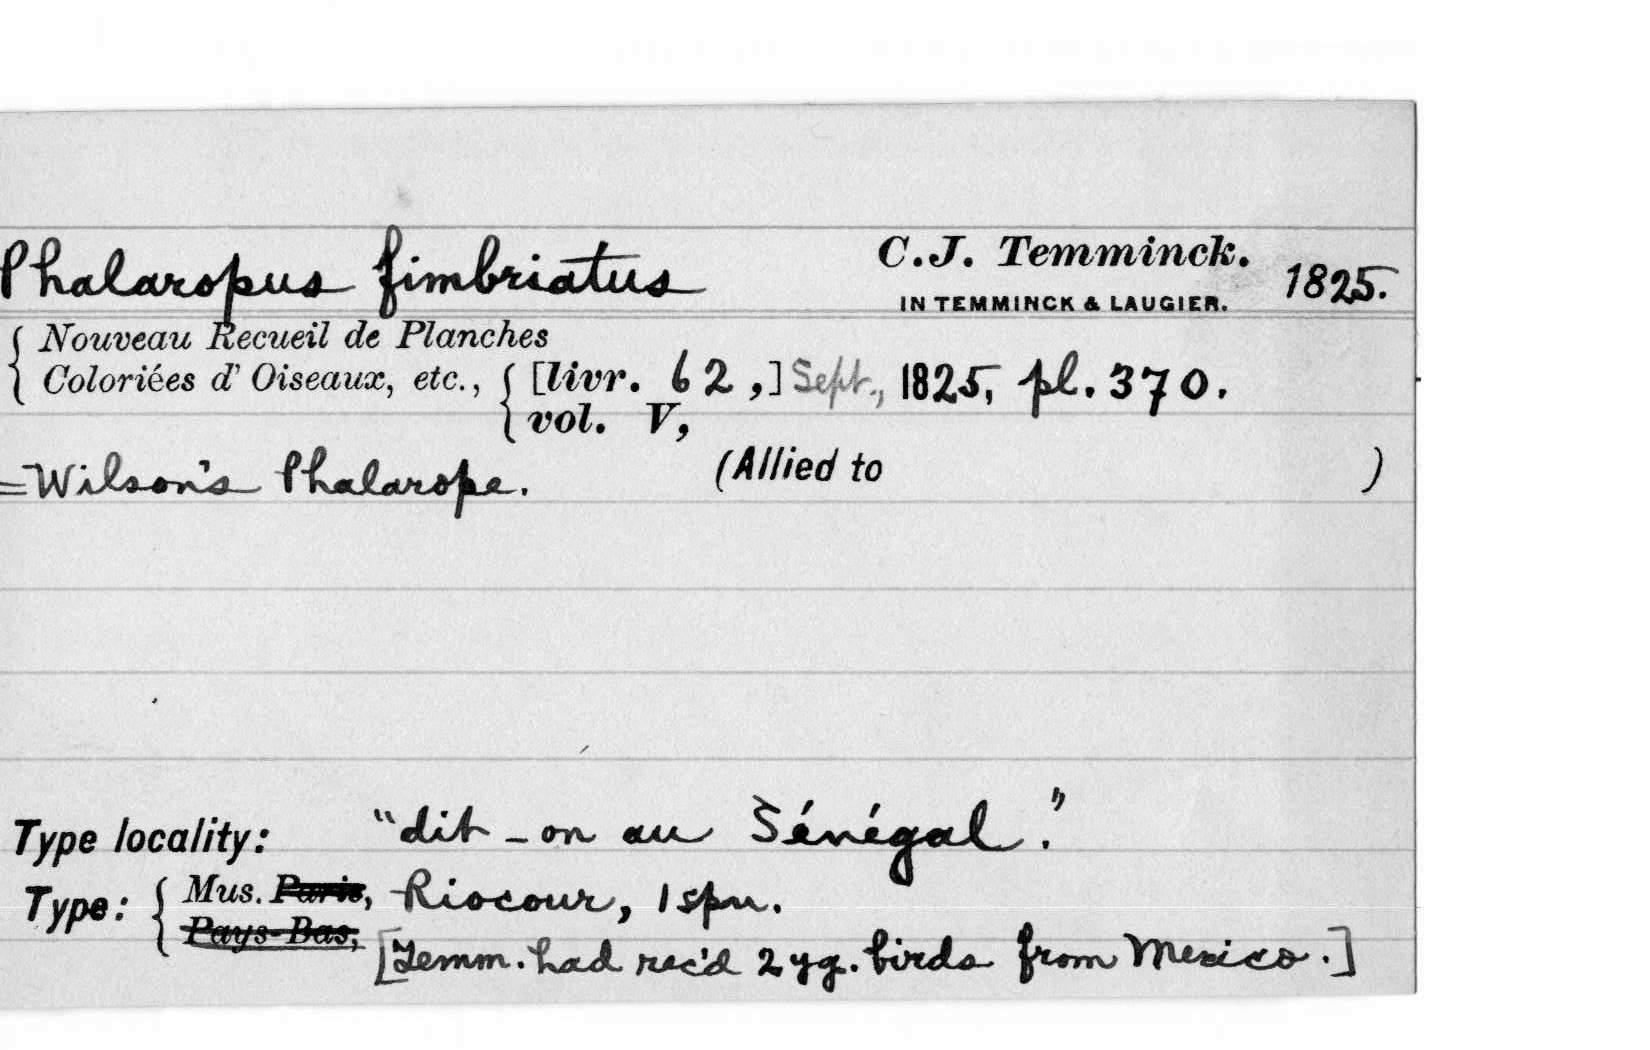 Phalaropus fimbriatus C.J. Temminck. 1825.
IN TEMMINCK & LAUGIER.
Nouveau Recueil de Planches
Coloriées d' Oiseaux, etc., [livr. 62,] Sept., 1825, pl. 370.
vol. V,
=Wilson's Phalarope. (Allied to )
Type locality: "dit-on au Sénégal."
Type: Mus. Paris, Riocour, 1 spn.
Pays-Bas,
[Temm. had rec'd 2 yg. birds from Mexico.]